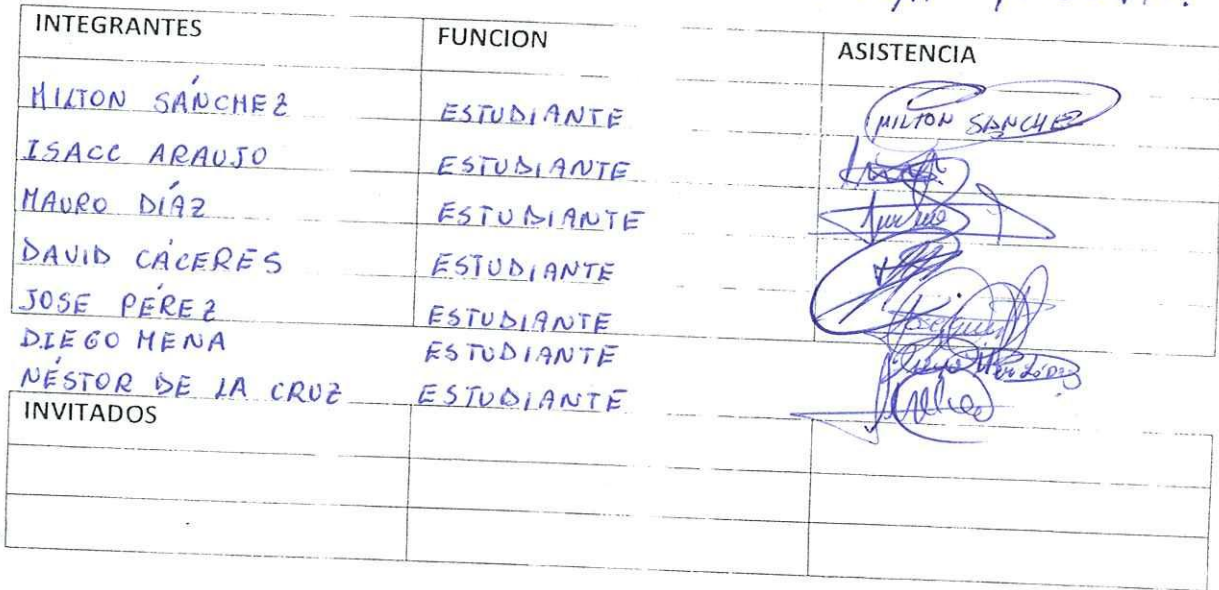 INTEGRANTES FUNCION ASISTENCIA
MILTON SÁNCHEZ ESTUDIANTE MILTON SANCHEZ
ISACC ARAUJO ESTUDIANTE
MAURO DÍAZ ESTUDIANTE
DAVID CÁCERES ESTUDIANTE
JOSE PÉREZ ESTUDIANTE
DIEGO MENA ESTUDIANTE
NÉSTOR DE LA CRUZ ESTUDIANTE
INVITADOS